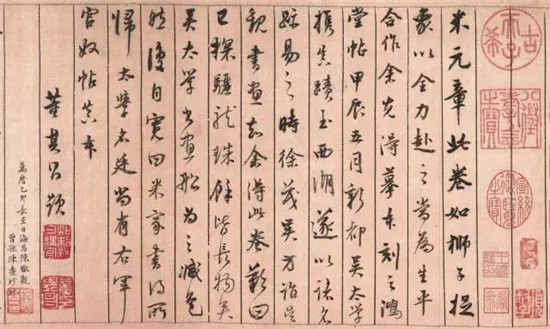 古希天子
八徵耄念之寶
宣統御覽之寶
米元章此卷如獅子捉
象以全力赴之當為生平
合作余先得摹本刻之鴻
堂帖甲辰五月新都吳太學
攜真蹟至西湖遂以諸名
跡易之時徐茂吳方詣吳
觀書畫知余得此卷歎曰
已探驪龍珠餘皆長物矣
吳太學書畫船為之減色
然復自寬曰米家書得所
歸太學名廷尚有右軍
官奴帖真本
董其昌題
萬曆乙卯長至日海昌陳觀
曾孫陳